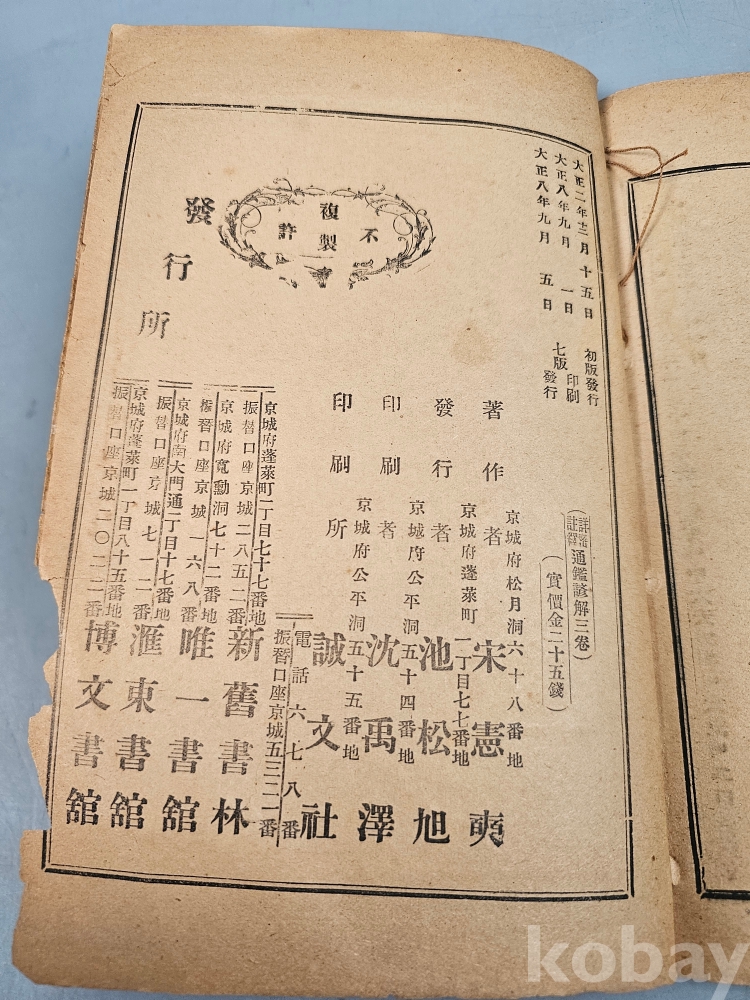 大正二年十二月十五日 初版發行
大正八年九月一日 印刷
大正八年九月五日 七版發行
詳密註釋 通鑑諺解三卷
(實價金二十五錢)
不許複製
京城府松月洞六十八番地
著作者 宋憲奭
京城府蓬萊町一丁目七七番地
發行者 池松旭
京城府公平洞五十四番地
印刷者 沈禹澤
京城府公平洞五十五番地
印刷所 誠文社
電話六七八番
振替口座京城五三二一番
發行所
京城府蓬萊町一丁目七十七番地
振替口座京城二八五二番
新舊書林
京城府寬勳洞七十二番地
振替口座京城一六八番
唯一書舘
京城府南大門通一丁目十七番地
振替口座京城七一二番
滙東書舘
京城府蓬萊町一丁目八十五番地
振替口座京城二〇二二番
博文書舘
kobay